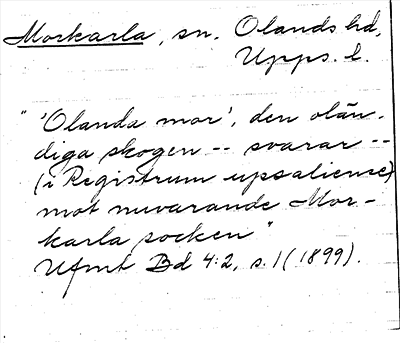 Morkarla, sn. Olands hd,
Upps. l.
"'Olanda mor', den olän-
diga skogen -- svarar --
(i Registrum upsaliense)
mot nuvarande Mor-
karla socken"
Ufmt Bd 4:2, s. 1 (1899).